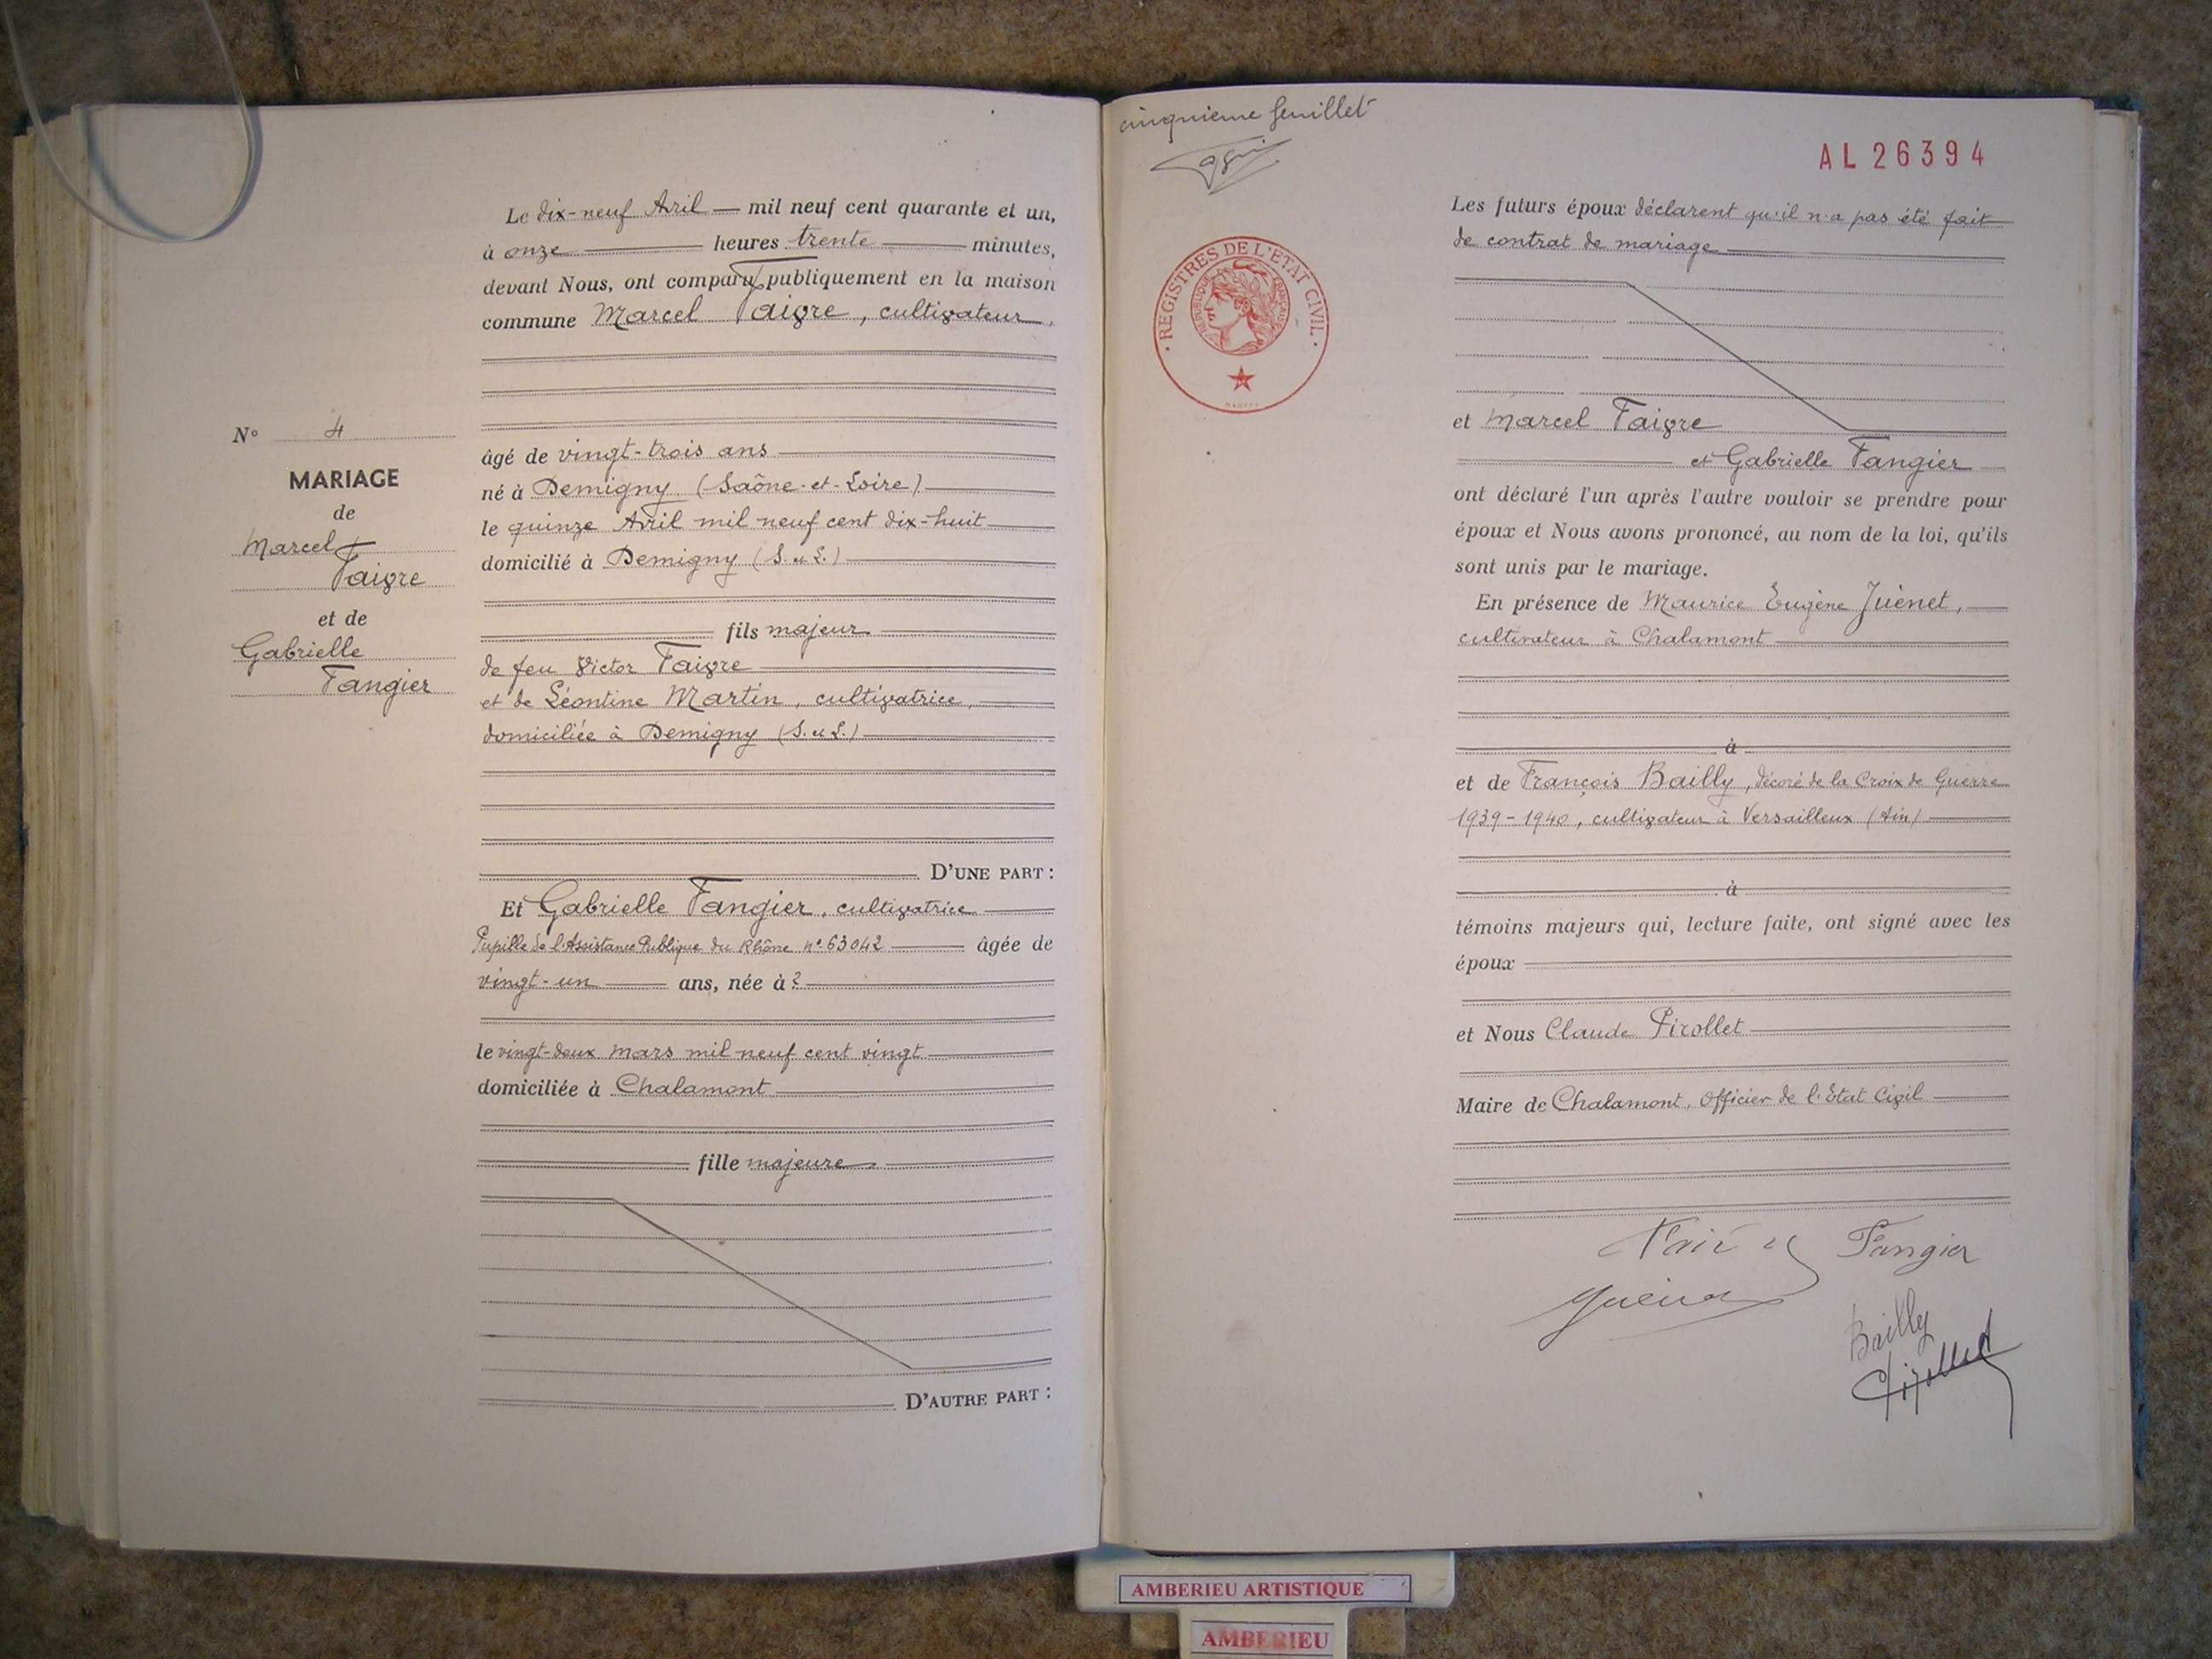 Le dix-neuf Avril — mil neuf cent quarante et un,
à onze heures trente minutes,
devant Nous, ont comparu publiquement en la maison
commune Marcel Faivre, cultivateur,
âgé de vingt-trois ans
né à Demigny (Saône-et-Loire)
le quinze Avril mil neuf cent dix-huit
domicilié à Demigny (S. et L.)
fils majeur
de feu Victor Faivre
et de Léontine Martin, cultivatrice,
domiciliée à Demigny (S. et L.)
D'UNE PART :
Et Gabrielle Fangier, cultivatrice
Pupille de l'Assistance Publique du Rhône n° 63042 âgée de
vingt-un ans, née à ?
le vingt-deux mars mil neuf cent vingt
domiciliée à Chalamont
fille majeure
D'AUTRE PART :
N° 4
MARIAGE
de
Marcel
Faivre
et de
Gabrielle
Fangier
cinquième feuillet
AL 26394
REGISTRES DE L'ETAT CIVIL
REPUBLIQUE FRANÇAISE
Les futurs époux déclarent qu'il n'a pas été fait
de contrat de mariage
et Marcel Faivre
et Gabrielle Fangier
ont déclaré l'un après l'autre vouloir se prendre pour
époux et Nous avons prononcé, au nom de la loi, qu'ils
sont unis par le mariage.
En présence de Maurice Eugène Juénet,
cultivateur à Chalamont
à
et de François Bailly, décoré de la Croix de Guerre
1939-1940, cultivateur à Versailleux (Ain)
à
témoins majeurs qui, lecture faite, ont signé avec les
époux
et Nous Claude Pirollet
Maire de Chalamont, Officier de l'Etat Civil
Fangier
Bailly
Pirollet
AMBERIEU ARTISTIQUE
AMBERIEU